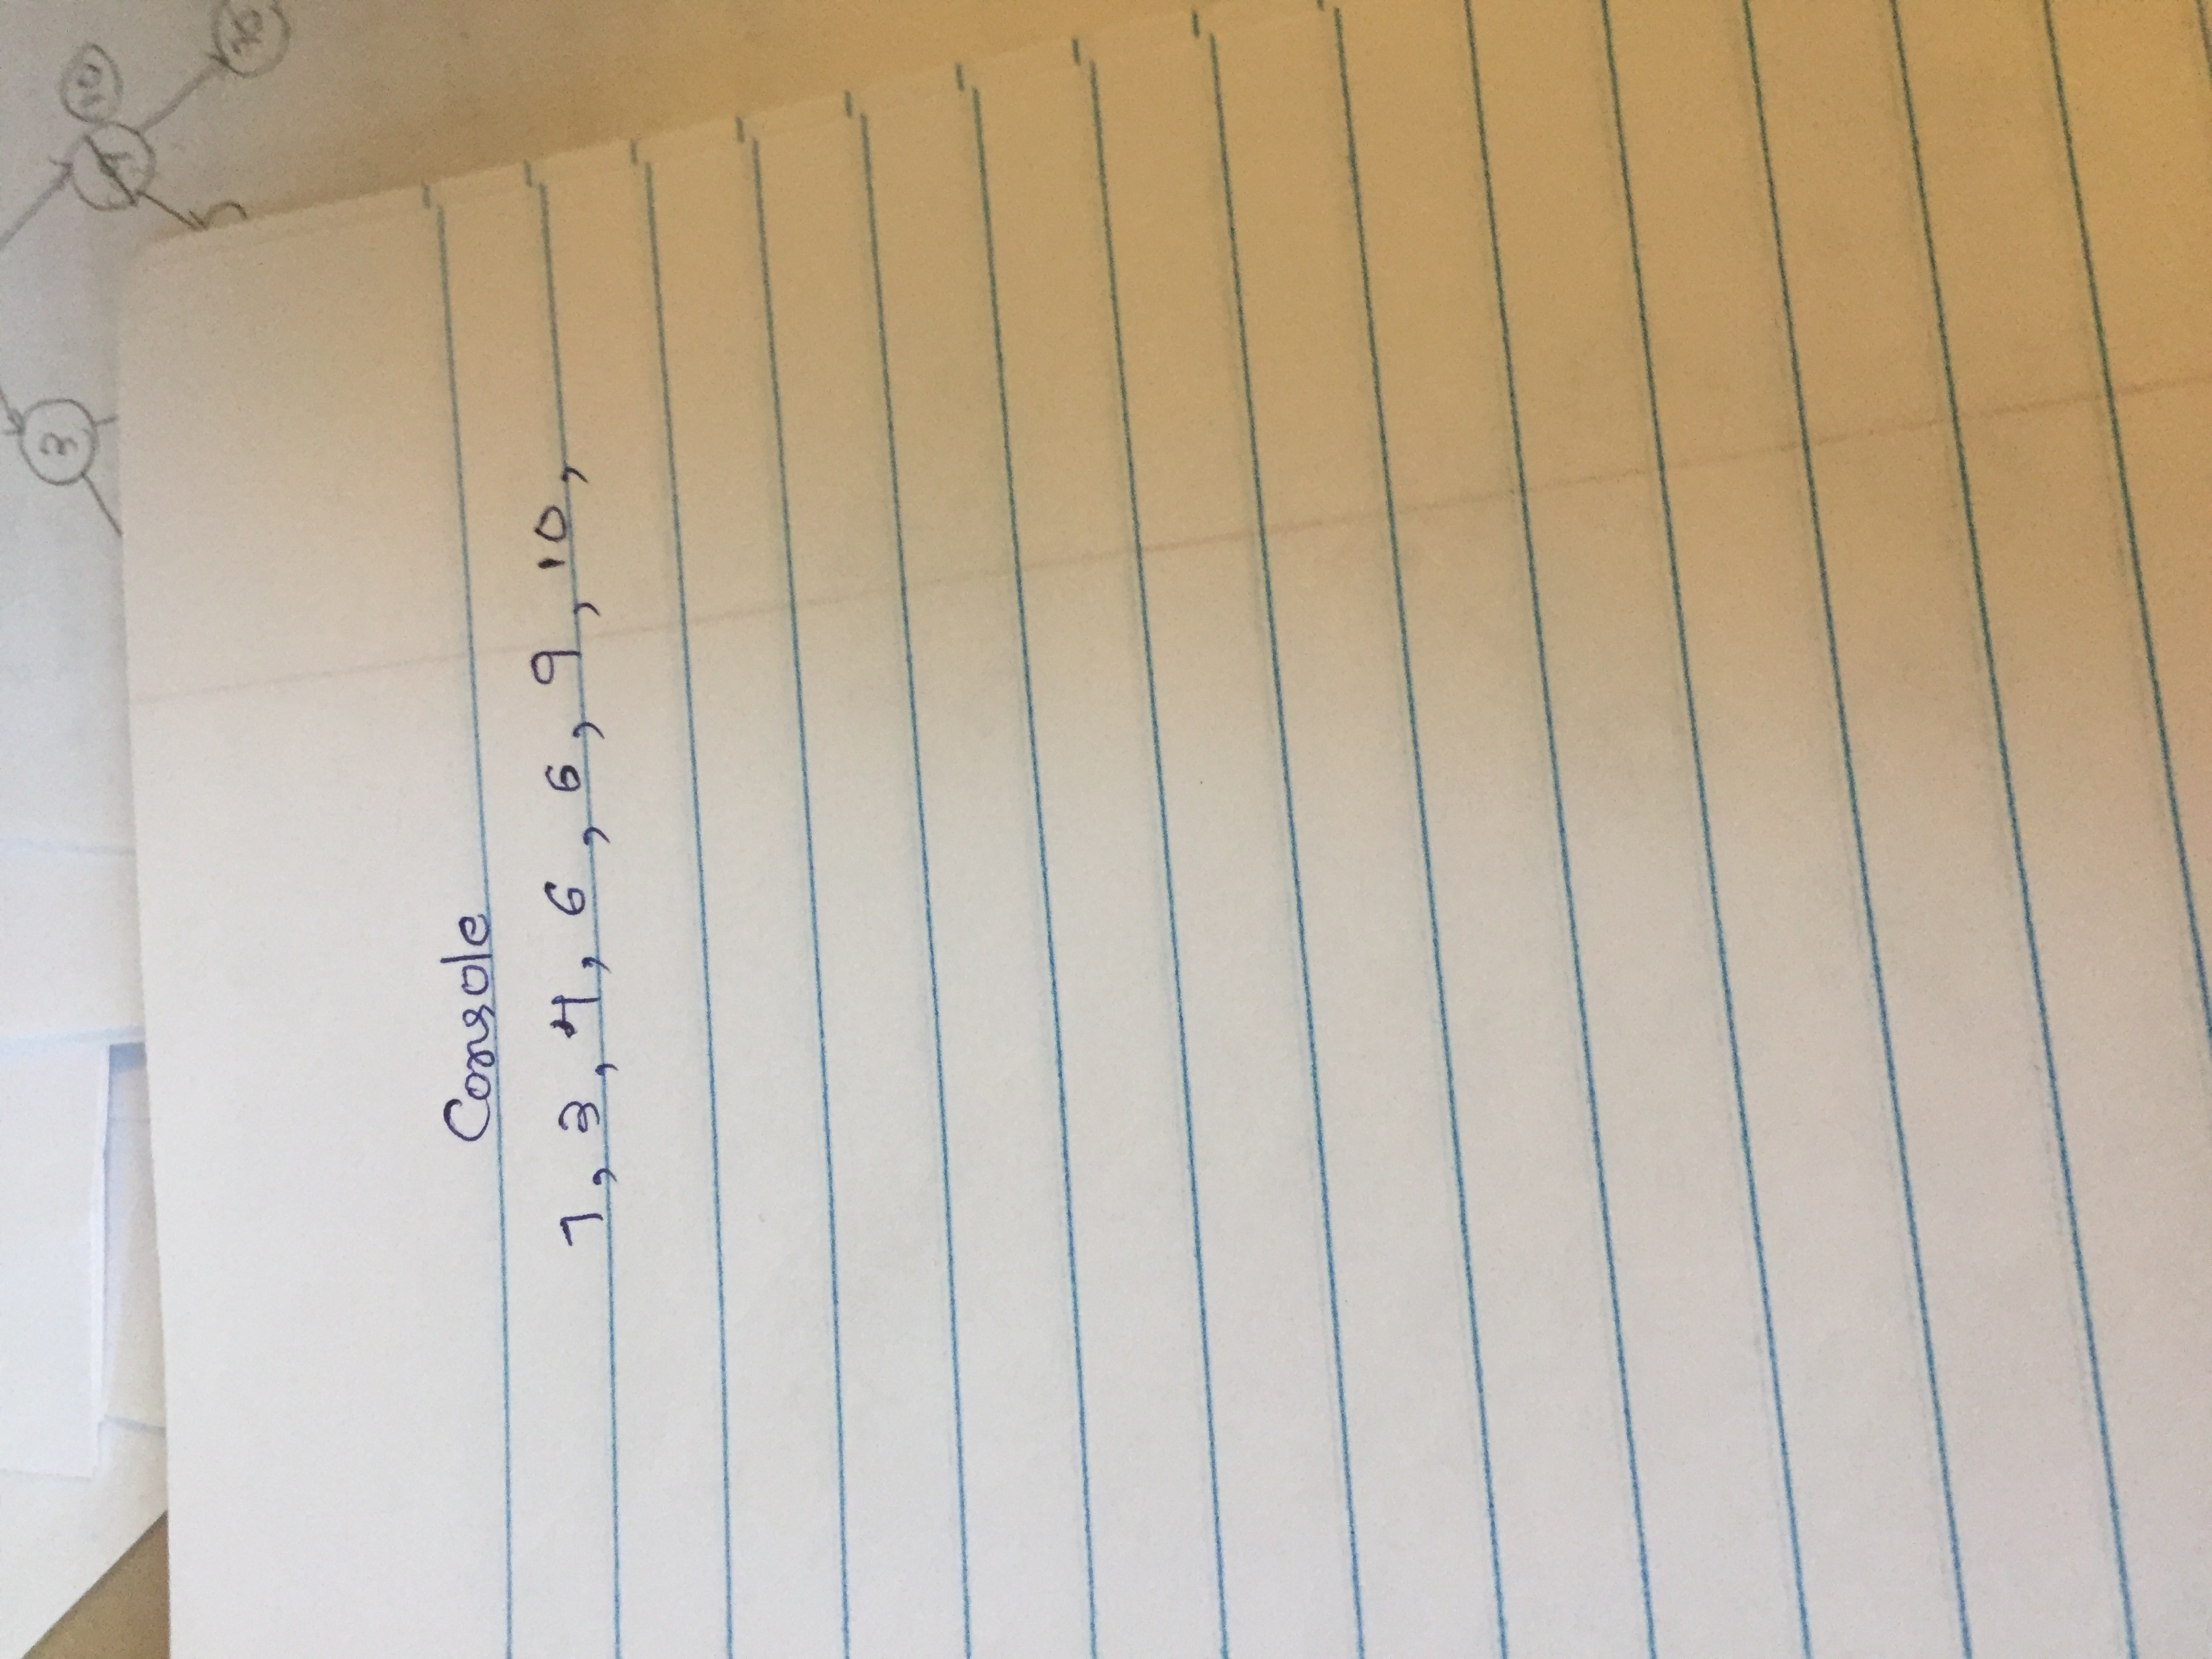 3
9 10
10
Console
1, 3, 4, 6, 6, 9, 10,